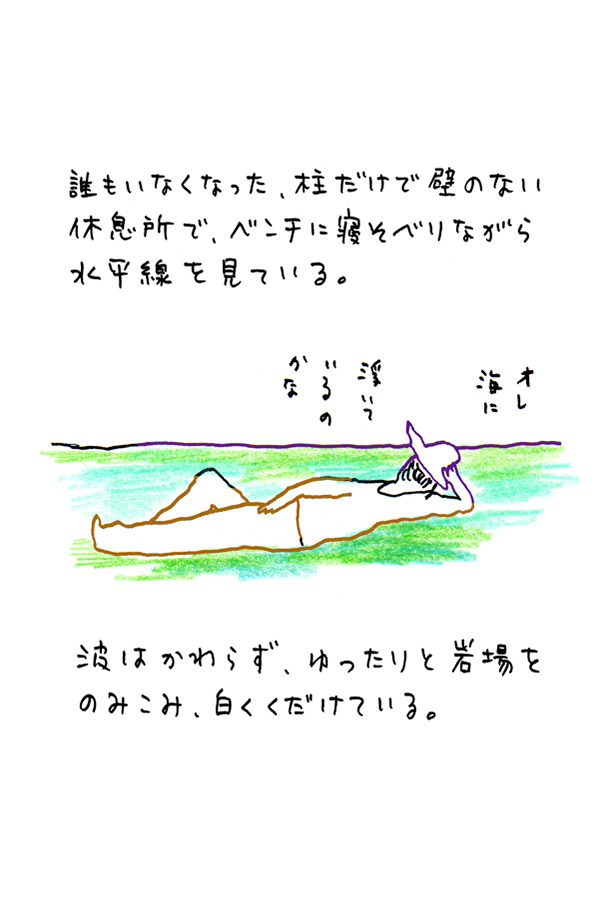 誰もいなくなった、柱だけで壁のない
休息所で、ベンチに寝そべりながら
水平線を見ている。
オレ
海に
浮いて
いるの
かな
波はかわらず、ゆったりと岩場を
のみこみ、白くくだけている。